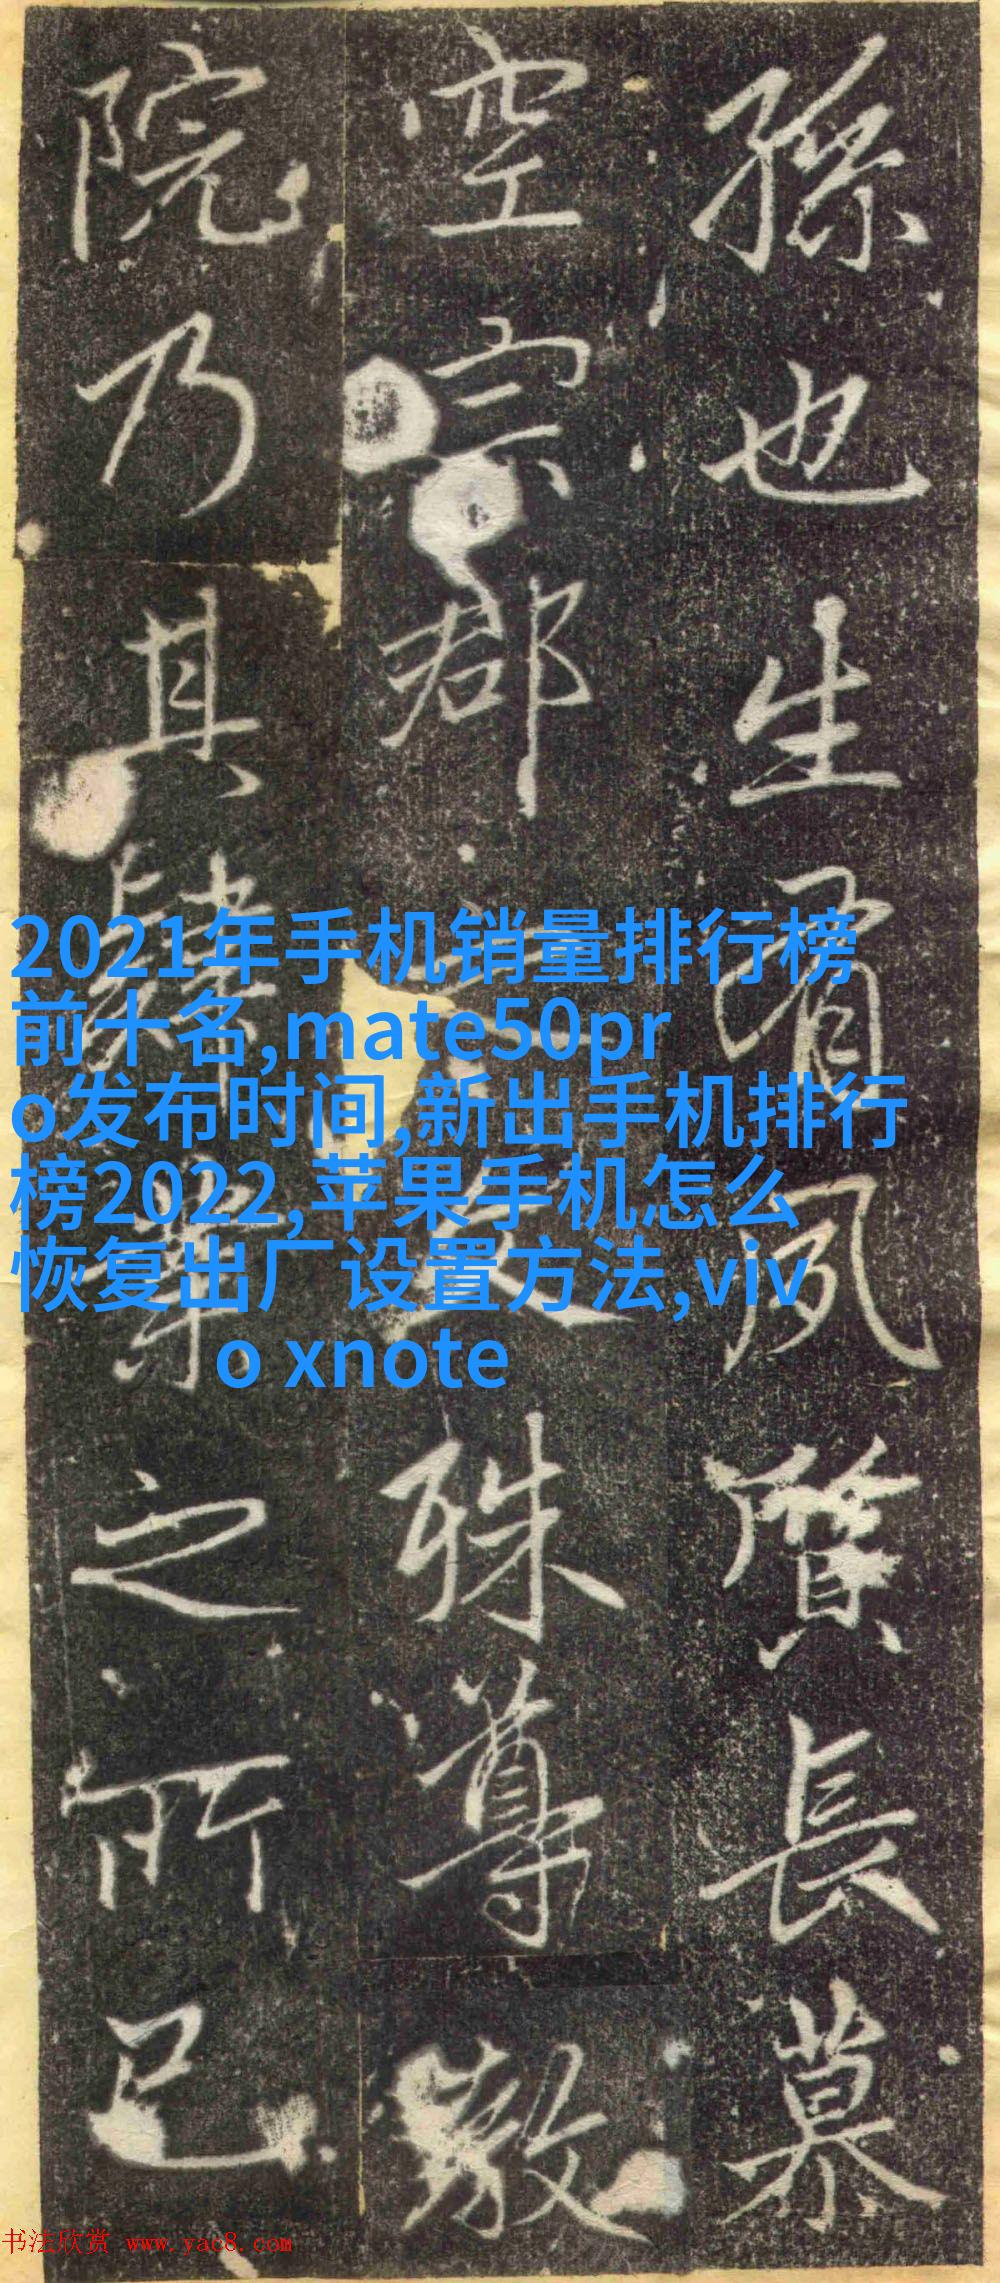 孫也生有夙質長慕
空宗郡
殊尊敬
院乃其肄業之所已
2021年手机销量排行榜
前十名,mate50pr
o发布时间,新出手机排行
榜2022,苹果手机怎么
恢复出厂设置方法,viv
o xnote
书法欣赏 www.yac8.com